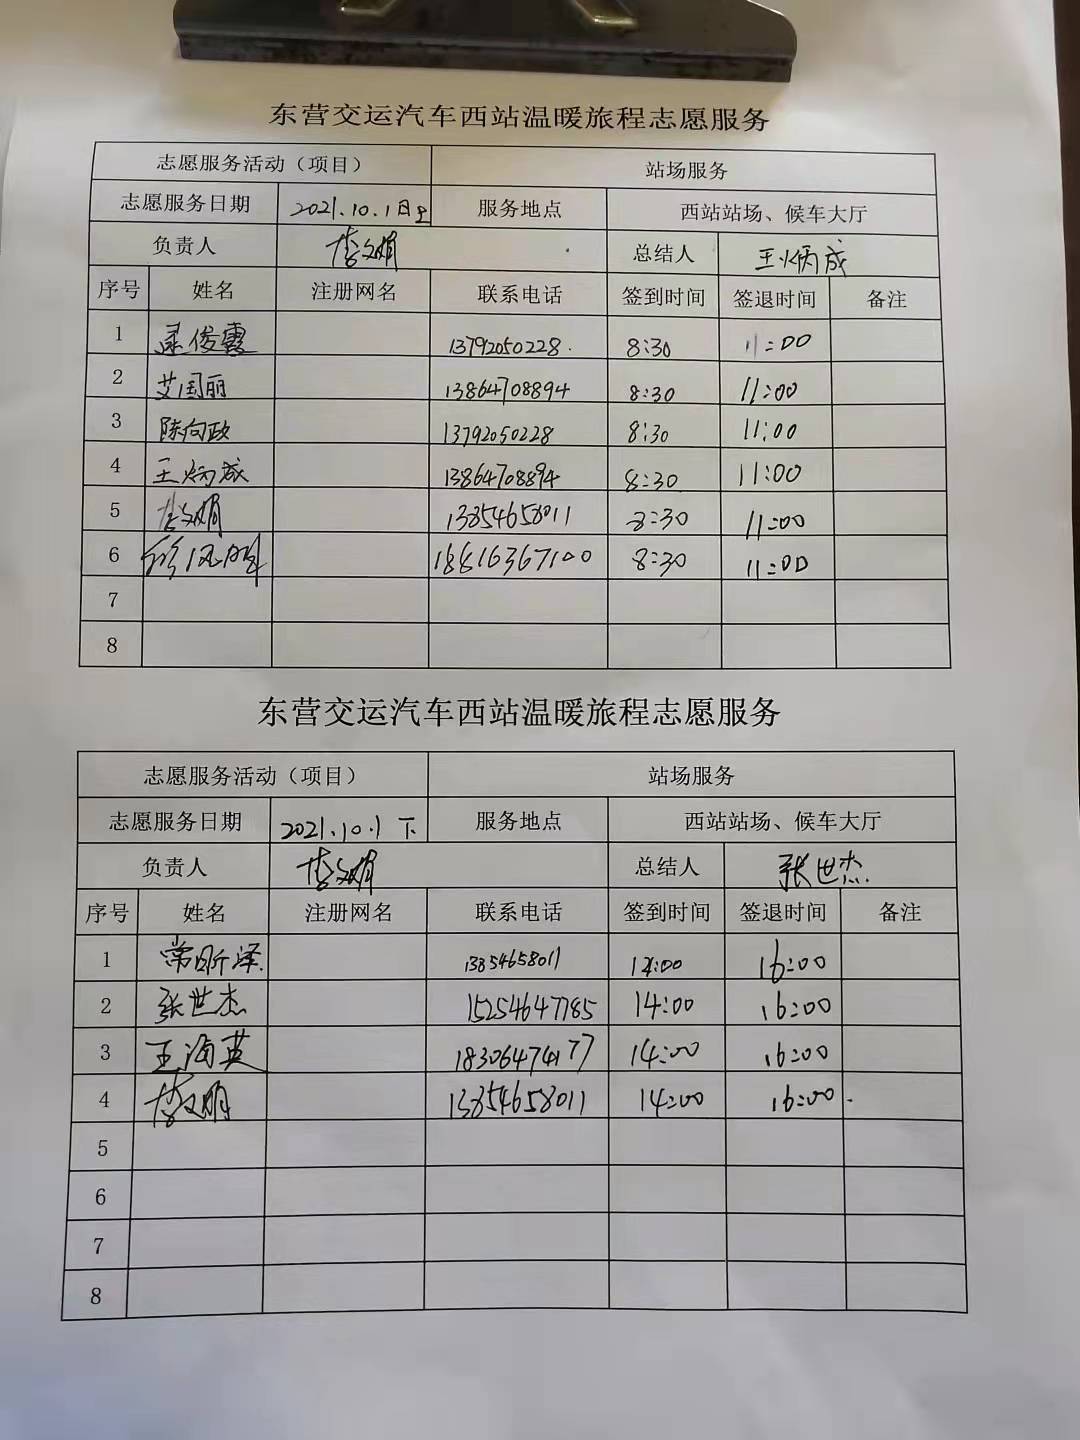 东营交运汽车西站温暖旅程志愿服务
志愿服务活动（项目） 站场服务
志愿服务日期 2021.10.1日上 服务地点 西站站场、候车大厅
负责人 李文娟 总结人 王炳成
序号 姓名 注册网名 联系电话 签到时间 签退时间 备注
1 俊霞 13792050228. 8:30 11:00
2 艾国丽 13864708894 8:30 11:00
3 陈向政 13792050228 8:30 11:00
4 王炳成 13864708894 8:30 11:00
5 李文娟 13854658011 8:30 11:00
6 18816367100 8:30 11:00
7
8
东营交运汽车西站温暖旅程志愿服务
志愿服务活动（项目） 站场服务
志愿服务日期 2021.10.1 下 服务地点 西站站场、候车大厅
负责人 李文娟 总结人 张世杰
序号 姓名 注册网名 联系电话 签到时间 签退时间 备注
1 常昕泽 13854658011 14:00 16:00
2 张世杰 15254647785 14:00 16:00
3 王海英 18306474177 14:00 16:00
4 李文娟 13854658011 14:00 16:00.
5
6
7
8